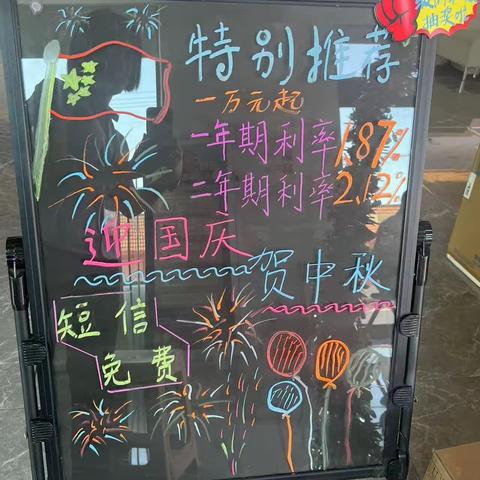 抽奖啦
特别推荐
一万元起
一年期利率1.87%
二年期利率2.12%
迎国庆
贺中秋
短信
免费